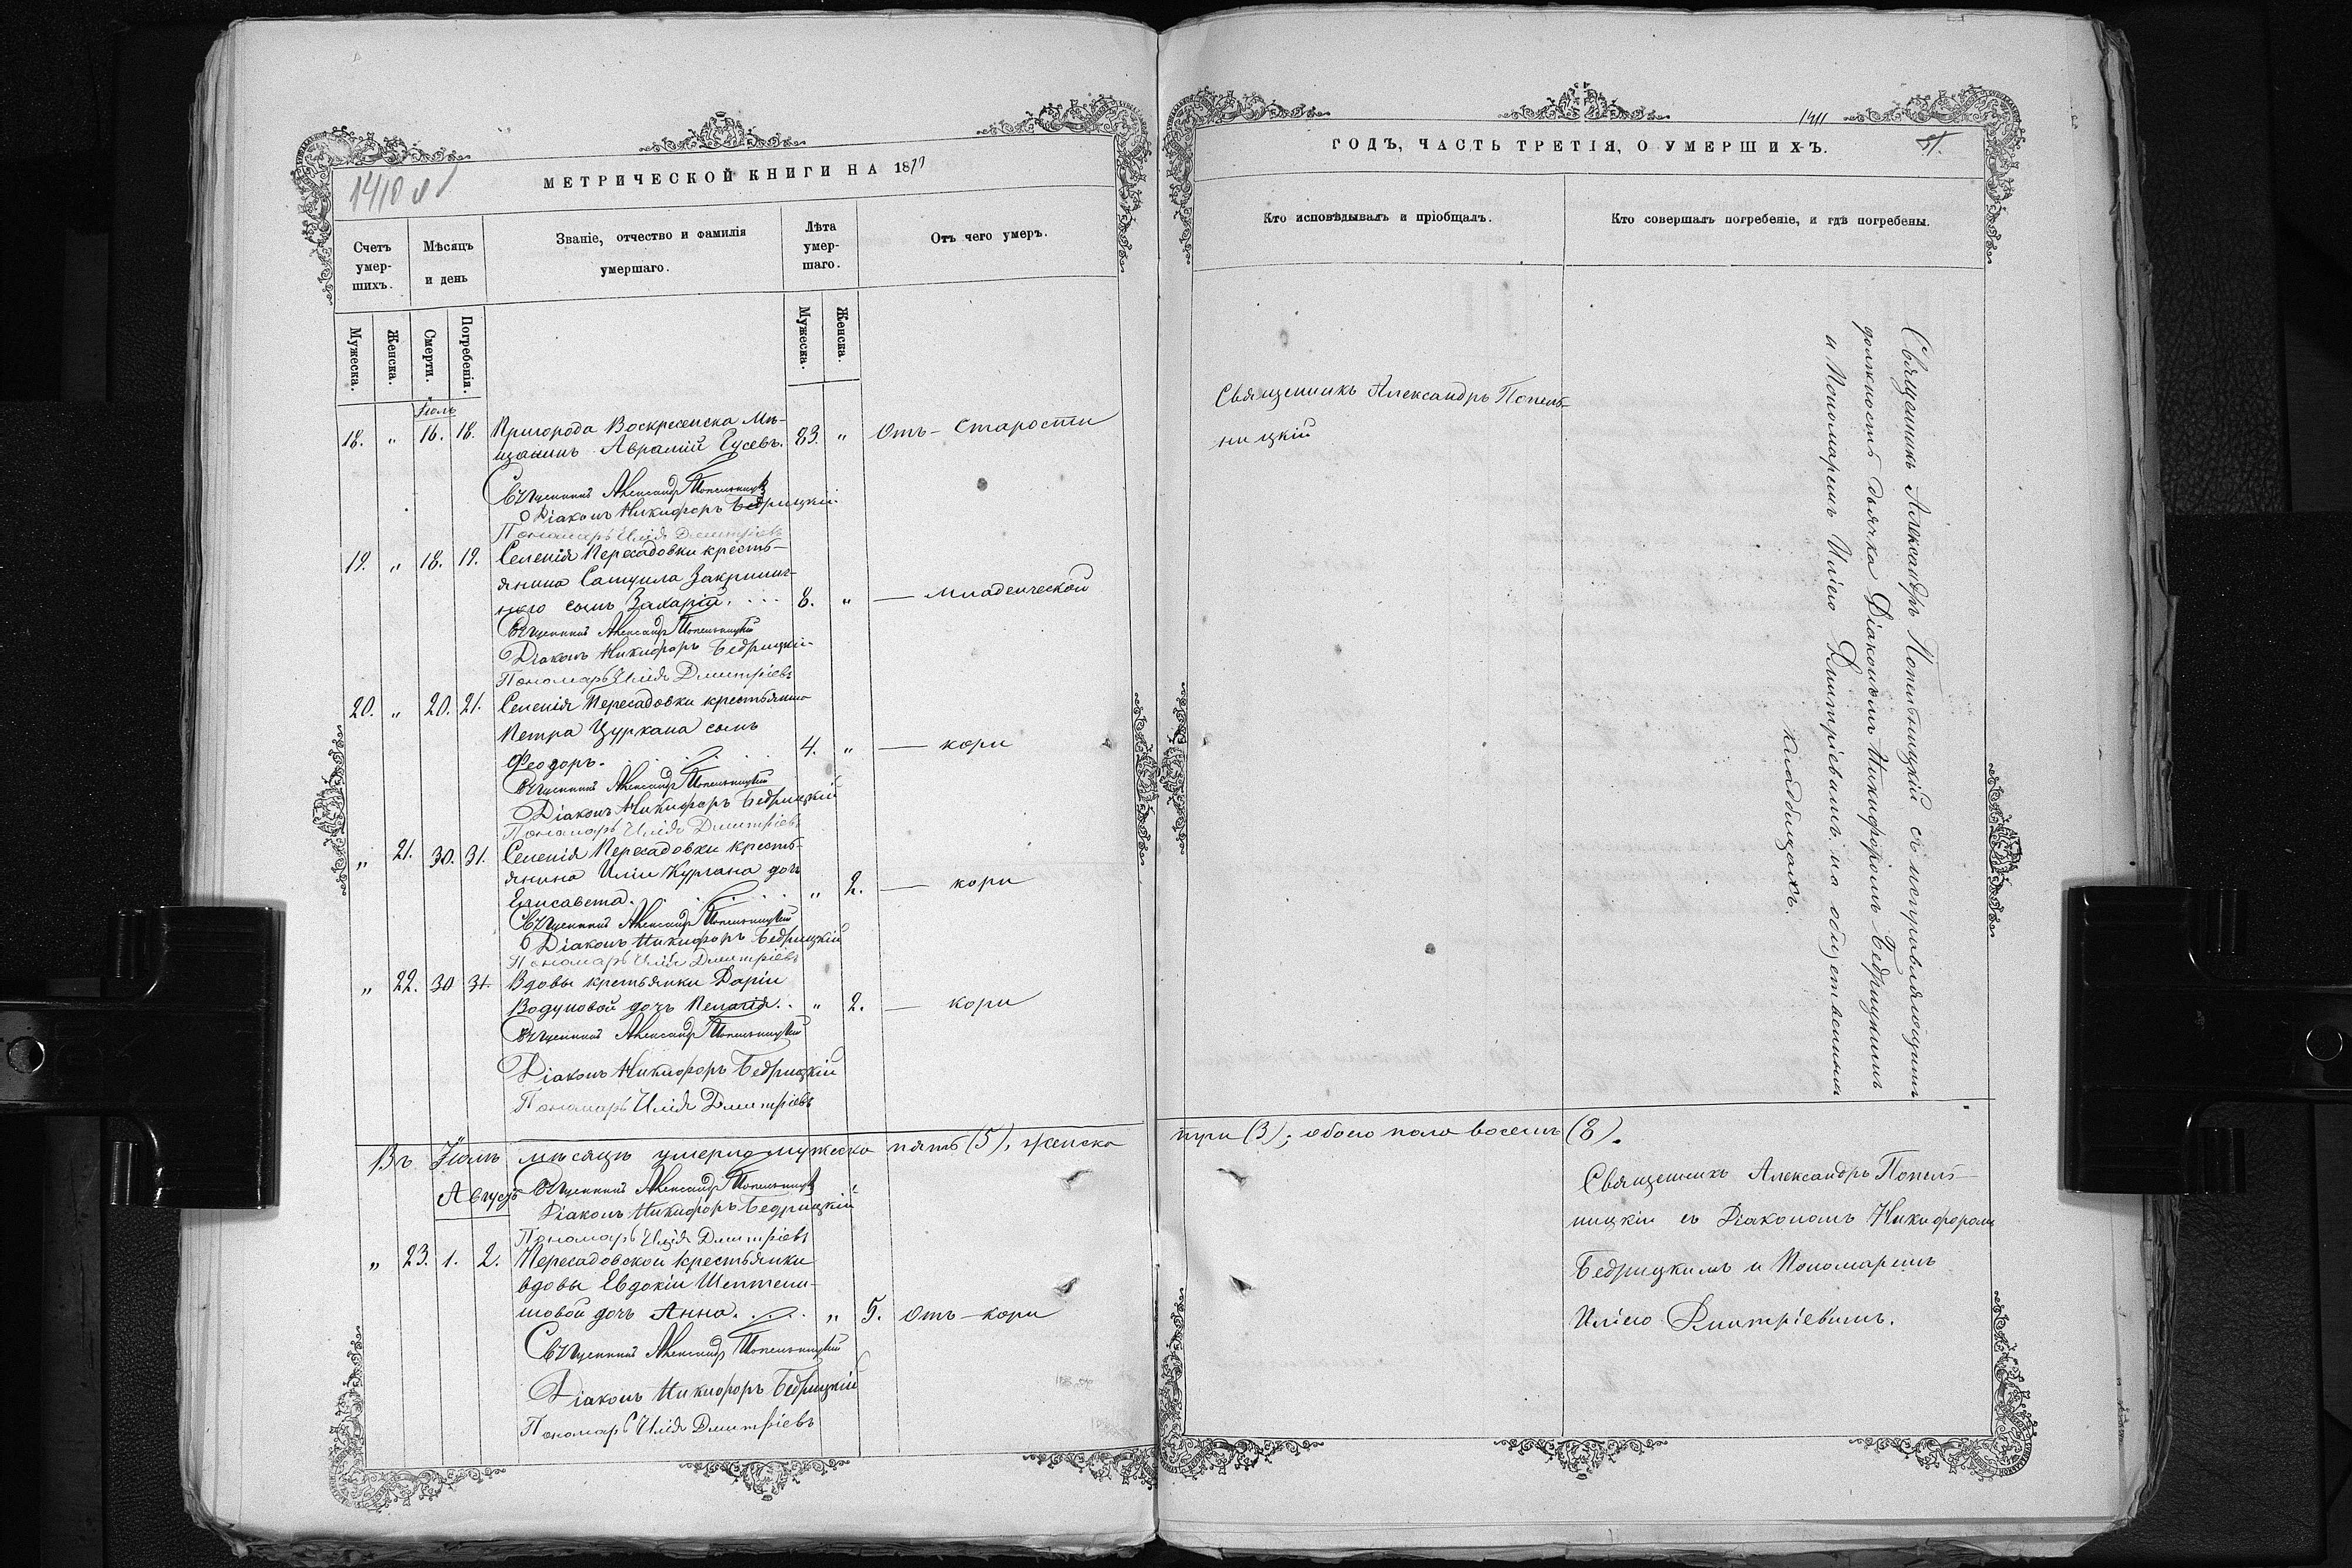 1410 об
МЕТРИЧЕСКОЙ КНИГИ НА 1877
Счетъ умер-шихъ.
Мѣсяцъ и день
Званіе, отчество и фамилія умершаго.
Лѣта умер-шаго.
Отъ чего умеръ.
Мужеска.
Женска.
Смерти.
Погребенія.
Мужеска.
Женска.
Іюль
18. „ 16. 18. Пригорода Воскресенска Мѣ-
щанинъ Аврамій Гусевъ. 83. „ Отъ - Старости
Священникъ Александръ Попельницкій
Діаконъ Никифоръ Бедрицкій
Пономарь Илія Дмитріевъ
19. „ 18. 19. Селенія Пересадовки кресть-
янина Самуила
ного сынъ Захарій. . . . 8. „ — Младенческой
Священникъ Александръ Попельницкій
Діаконъ Никифоръ Бедрицкій
Пономарь Илія Дмитріевъ
20. „ 20. 21. Селенія Пересадовки крестьянина
Петра Цуркана сынъ
Феодоръ. . . . . 4. „ — кори
Священникъ Александръ Попельницкій
Діаконъ Никифоръ Бедрицкій
Пономарь Илія Дмитріевъ
„ 21. 30. 31. Селенія Пересадовки кресть-
янина Иліи Кургана дочь
Елисавета. . . . . „ 2. — кори
Священникъ Александръ Попельницкій
Діаконъ Никифоръ Бедрицкій
Пономарь Илія Дмитріевъ
„ 22. 30 31. Вдовы крестьянки Даріи
Водуновой дочь Пелагія. . „ 2. — кори
Священникъ Александръ Попельницкій
Діаконъ Никифоръ Бедрицкій
Пономарь Илія Дмитріевъ
Въ Іюлѣ мѣсяцѣ умерло мужеска пять (5), женска
Августъ
Священникъ Александръ Попельницкій
Діаконъ Никифоръ Бедрицкій
Пономарь Илія Дмитріевъ
„ 23. 1. 2. Пересадовской крестьянки
вдовы Евдокіи
шовой дочь Анна. . . . „ 5. Отъ - кори
Священникъ Александръ Попельницкій
Діаконъ Никифоръ Бедрицкій
Пономарь Илія Дмитріевъ
1411
ГОДЪ, ЧАСТЬ ТРЕТІЯ, О УМЕРШИХЪ.
51.
Кто исповѣдывалъ и пріобщалъ.
Кто совершалъ погребеніе, и гдѣ погребены.
Священникъ Александръ Попель-
ницкій
Священникъ Александръ Попельницкій съ исправляющимъ
должность дьячка Діакономъ Никифоромъ Бедрицкимъ
и Пономаремъ Иліею Дмитріевымъ на общественныхъ
кладбищахъ.
три (3); обоего пола восемь (8).
Священникъ Александръ Попель-
ницкій съ Діакономъ Никифоромъ
Бедрицкимъ и Пономаремъ
Иліею Дмитріевымъ.